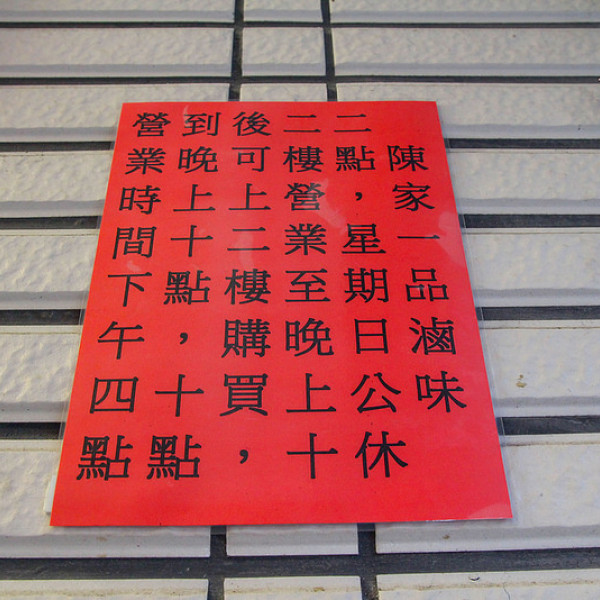 陳家一品滷味
營業時間下午四點
到晚上十點，十點
後可上二樓購買，
二樓營業至晚上十
二點，星期日公休